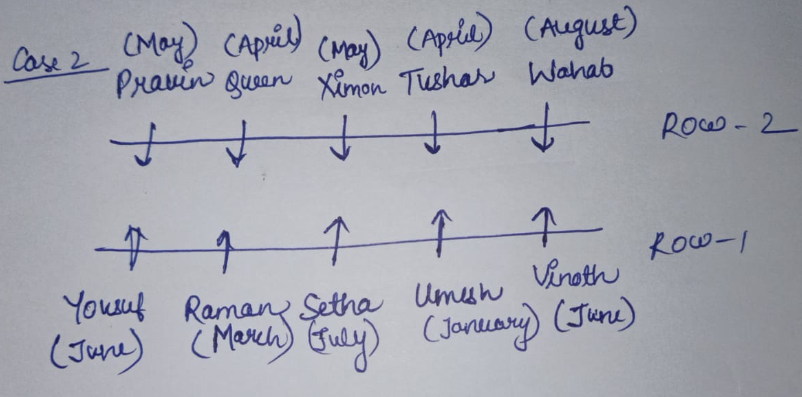 Case 2 (May) (April) (May) (April) (August)
Pravin Queen Ximon Tushar Wahab
Row-2
Row-1
Yousuf Raman Setha Umesh Vinoth
(June) (March) (July) (January) (June)